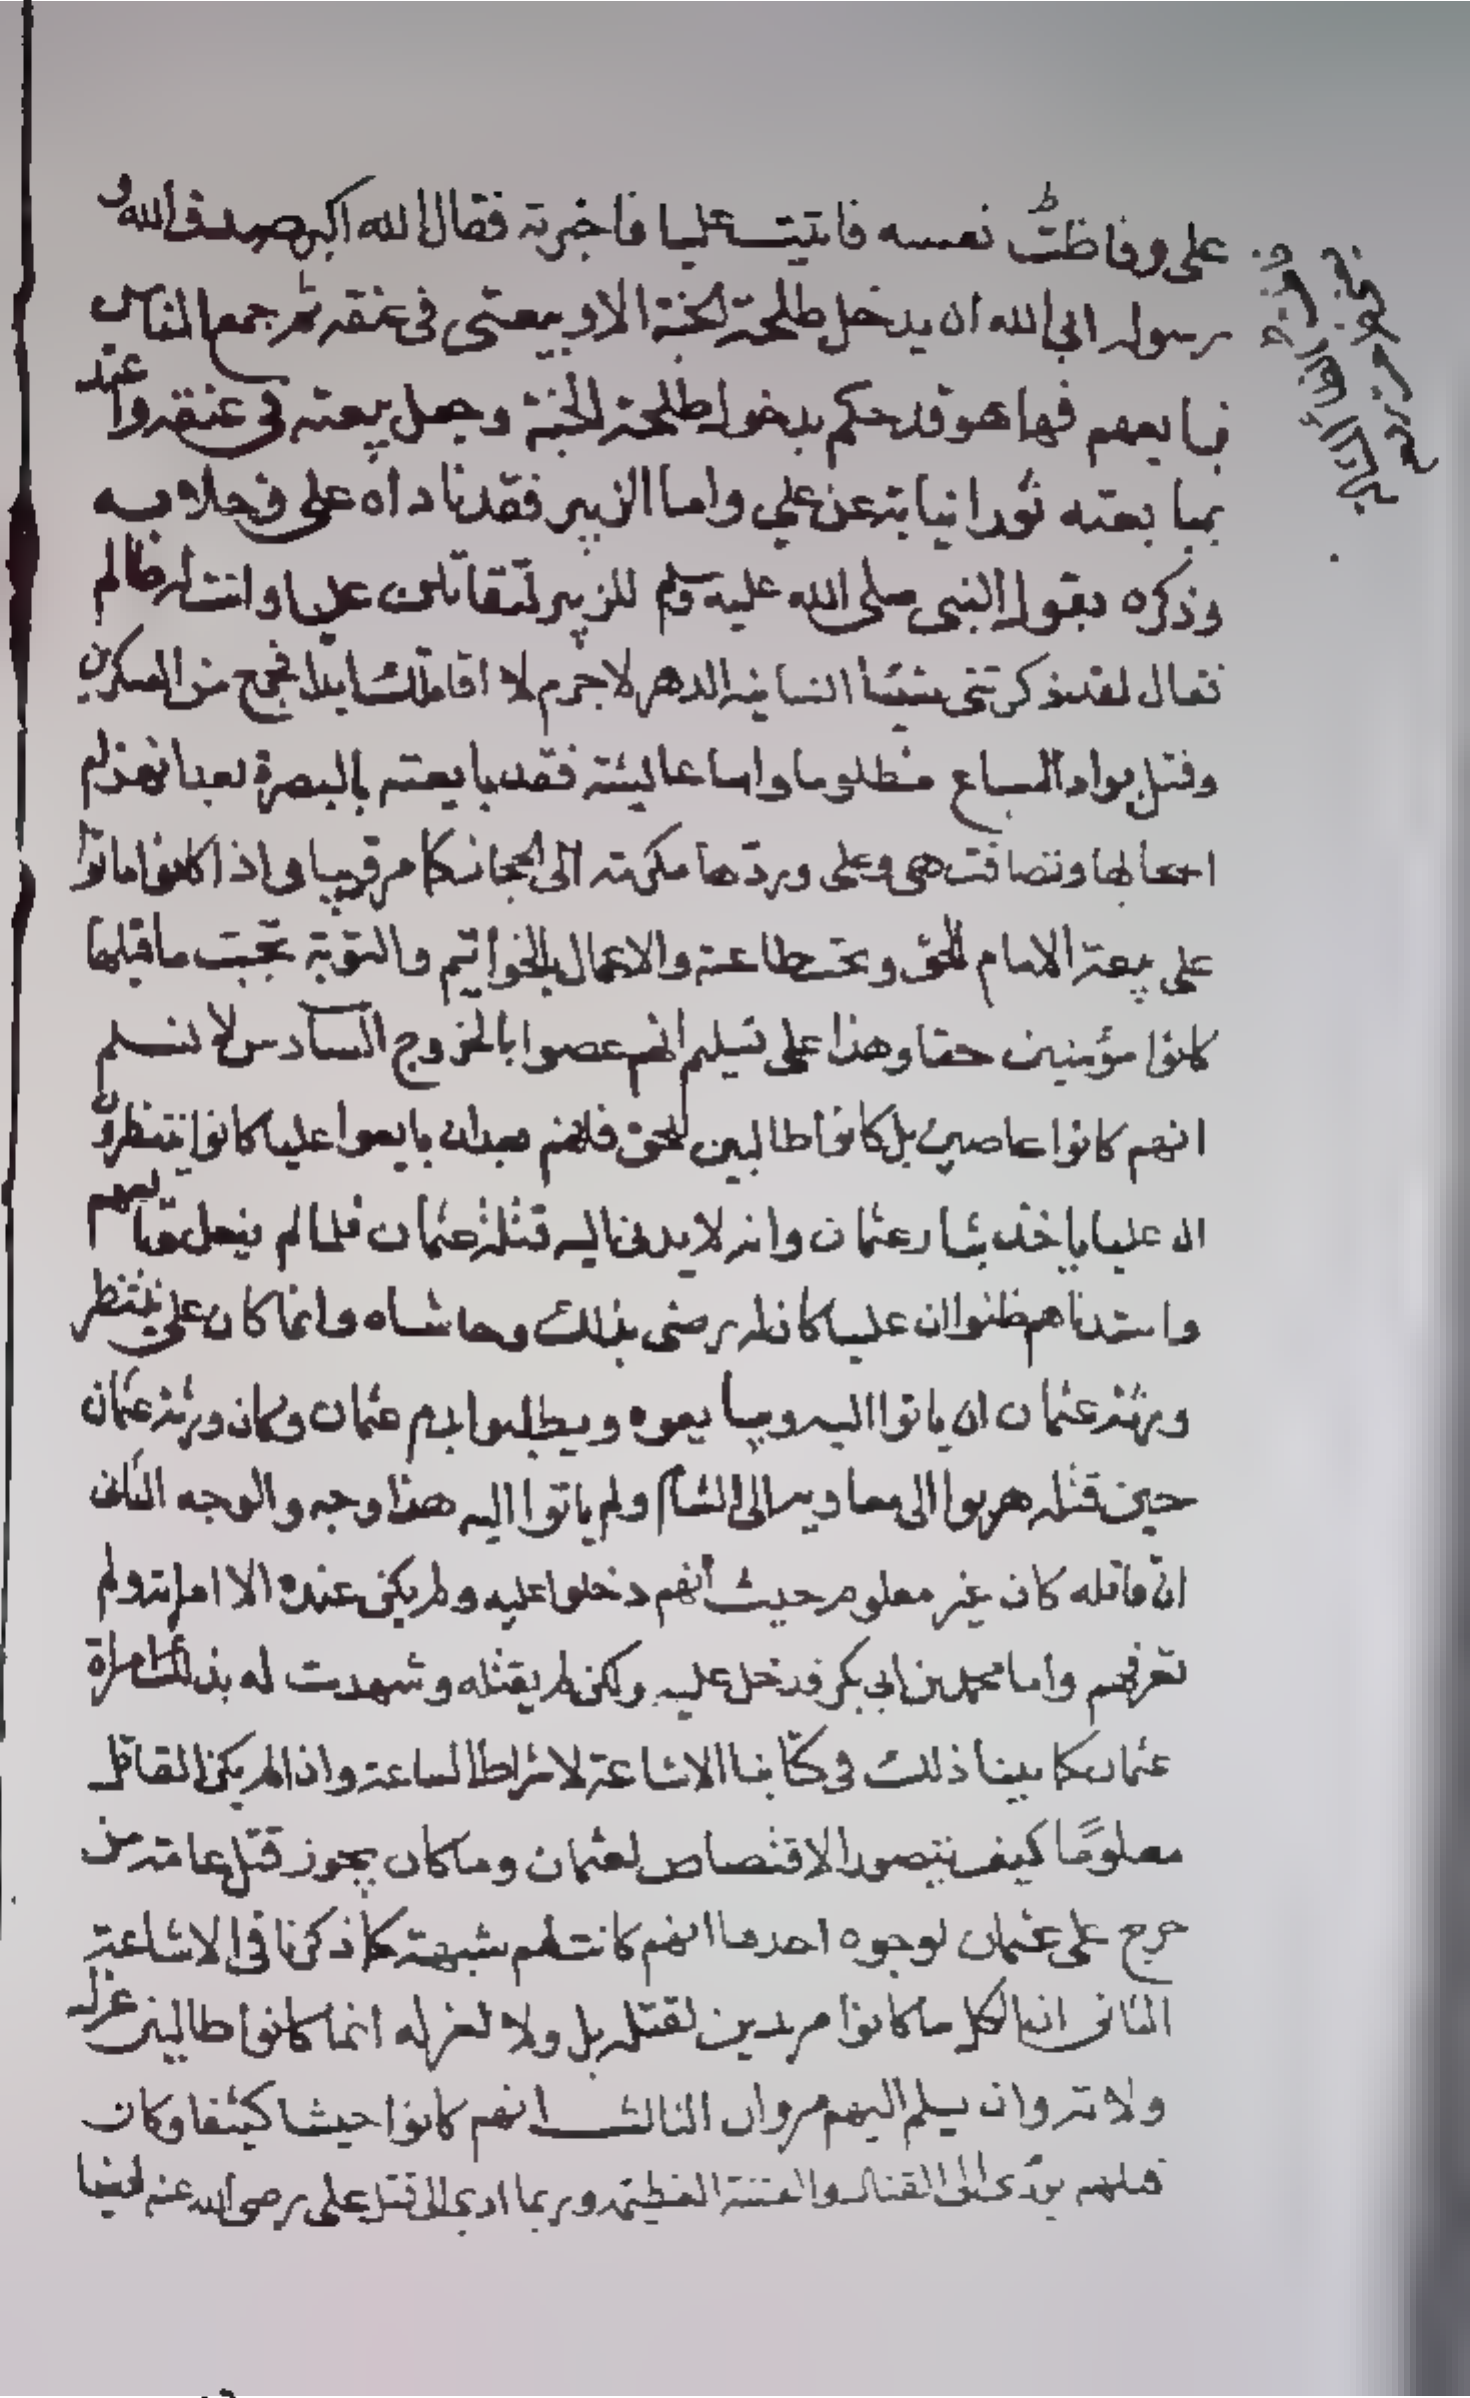 على وفاظت نفسه فاتيت عليا فاخبرته فقال الله اكبر صدق الله و
رسوله ابى الله ان يدخل طلحة الجنة الا وبيعتى فى عنقه ثم جمع الناس
فبايعهم فها هو قد حكم بدخول طلحة الجنة وجعل بيعته فى عنقه
بمبايعته نيابة عن علي واما الزبير فقد ناداه على وخلا به
وذكره بقول النبى صلى الله عليه وسلم للزبير لتقاتلن عليا وانت له ظالم
فقال لقد ذكرتنى شيئا انسانيه الدهر لا جرم لا اقاتلك ابدا فخرج من العسكرين
وقتل بوادى السباع مظلوما واما عائشة فقد بايعته بالبصرة بعد انهزام
اصحابها وتصافت هى وعلى وردها مكرمة الى الحجاز كما مر قريبا واذا كانوا ماتوا
على بيعة الامام الحق وتحت طاعته والاعمال بالخواتيم والتوبة تجب ما قبلها
كانوا مؤمنين حقا وهذا على تسليم انهم عصوا بالخروج السادس لا نسلم
انهم كانوا عاصين بل كانوا طالبين للحق فانهم بعد ان بايعوا عليا كانوا ينتظرون
ان عليا ياخذ بثار عثمان وانه لا يدنى اليه قتلة عثمان فلما لم يفعل
واستدناهم ظنوا ان عليا كان له رضى بذلك وحاشاه وانما كان علي ينتظر
ورثة عثمان ان ياتوا اليه ويبايعوه ويطلبوا بدم عثمان وكان ورثة عثمان
حين قتله هربوا الى معاوية الى الشام ولم ياتوا اليه هذا وجه والوجه الثانى
ان قاتله كان غير معلوم حيث انهم دخلوا عليه ولم يكن عنده الا امراته ولم
تعرفهم واما محمد بن ابى بكر فدخل عليه ولكن لم يقتله وشهدت له بذلك امراة
عثمان كما بينا ذلك فى كتابنا الاشاعة لاشراط الساعة واذا لم يكن القاتل
معلومًا كيف يتصور الاقتصاص لعثمان وما كان يجوز قتل عامة من
خرج على عثمان لوجوه احدها انهم كانت لهم شبهة كما ذكرنا فى الاشاعة
الثانى ان الكل ما كانوا مريدين لقتله بل ولا لعزله انما كانوا طالبين عزل
ولاته وان يسلم اليهم مروان الثالث انهم كانوا جيشا كثيفا وكان
قتلهم يؤدى الى القتال والفتنة العظيمة وربما ادى الى قتل على رضى الله عنه ايضا